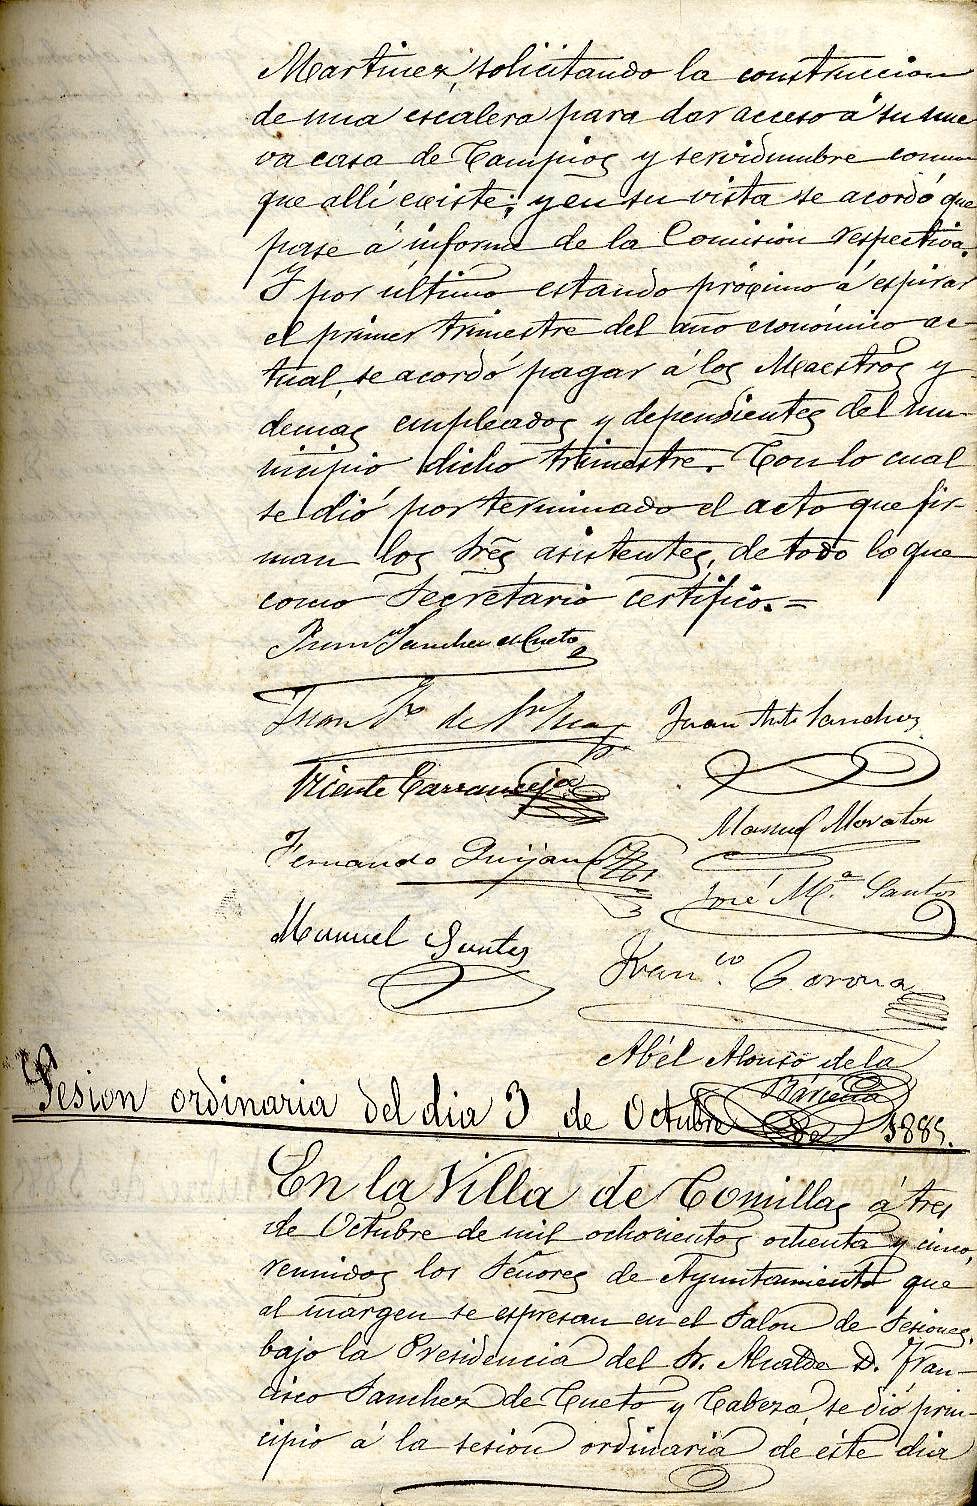 Martinez, solicitando la construccion
de una escalera para dar acceso á su nue
va casa de Campios y servidumbre comun
que allí existe; y en su vista se acordó que
pase á informe de la Comision respectiva.
Y por último estando próximo á espirar
el primer trimestre del año económico ac-
tual, se acordó pagar á los Maestros y
demas empleados y dependientes del mu-
nicipio dicho trimestre. Con lo cual
se dió por terminado el acto que fir-
man los Sres asistentes, de todo lo que
como Secretario certifico.=
Sanchez de Cueto
Juan de
Juan Anto Sanchez
Vicente Carranceja
Manuel Moraton
Fernando Quijano
José Mª Santos
Manuel Santos
Franco Corona
Abél Alonso de la
Bárcena
Sesion ordinaria del dia 3 de Octubre de 1885.
En la Villa de Comillas á tres
de Octubre de mil ochocientos ochenta y cinco,
reunidos los Señores de Ayuntamiento que
al márgen se espresan en el Salon de Sesiones,
bajo la Presidencia del Sr. Alcalde D. Fran-
cisco Sanchez de Cueto y Cabeza, se dió prin-
cipio á la sesion ordinaria de éste dia